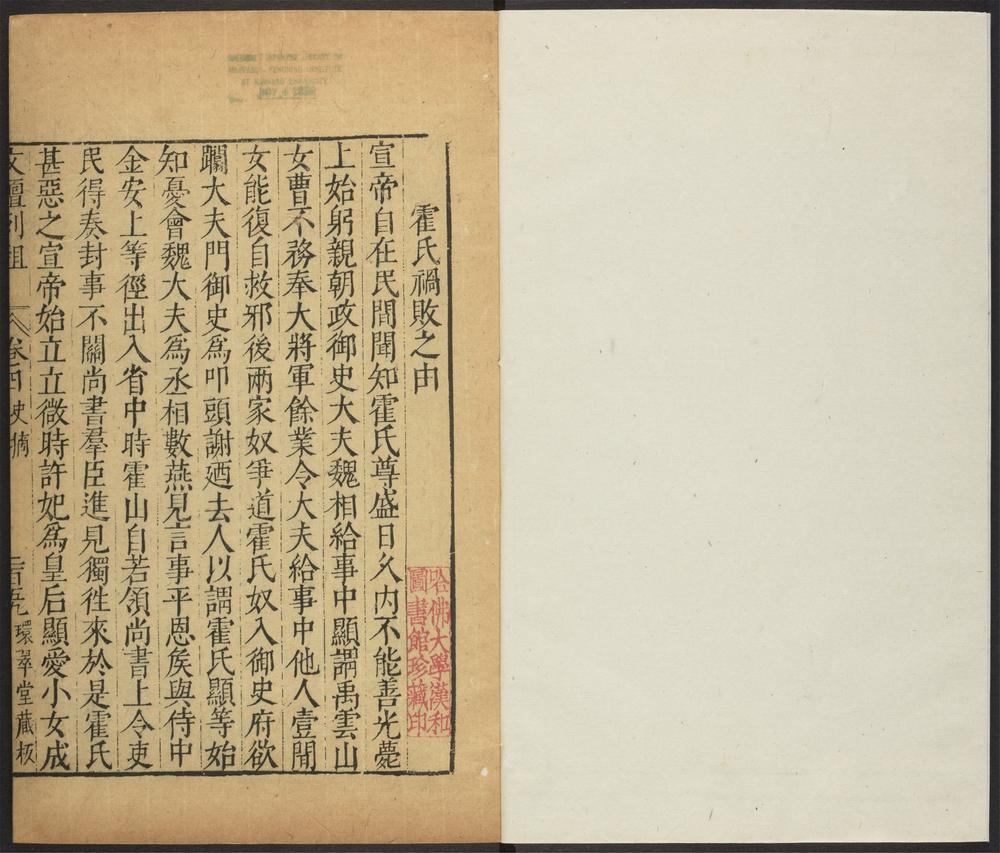 霍氏禍敗之由
宣帝自在民間聞知霍氏尊盛日久内不能善光薨
上始躬親朝政御史大夫魏相給事中顯謂禹雲山
女曹不務奉大將軍餘業今大夫給事中他人壹間
女能復自救邪後兩家奴爭道霍氏奴入御史府欲
躢大夫門御史爲叩頭謝廼去人以謂霍氏顯等始
知憂會魏大夫爲丞相數燕見言事平恩矦與侍中
金安上等徑出入省中時霍山自若領尚書上令吏
民得奏封事不關尚書羣臣進見獨徃來於是霍氏
甚惡之宣帝始立立微時許妃爲皇后顯愛小女成
文壇列俎
卷四
史摘
環翠堂藏板
哈佛大學漢和
圖書館珍藏印